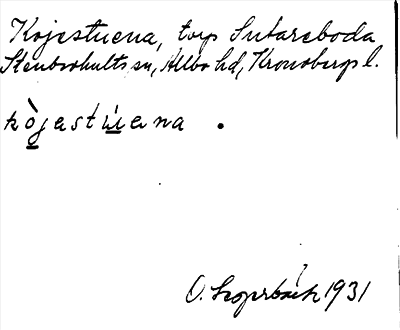 Kojestuena, torp Sutareboda
Stenbrohults sn, Allbo hd, Kronobergs l.
kòjestúena .
O. 1931